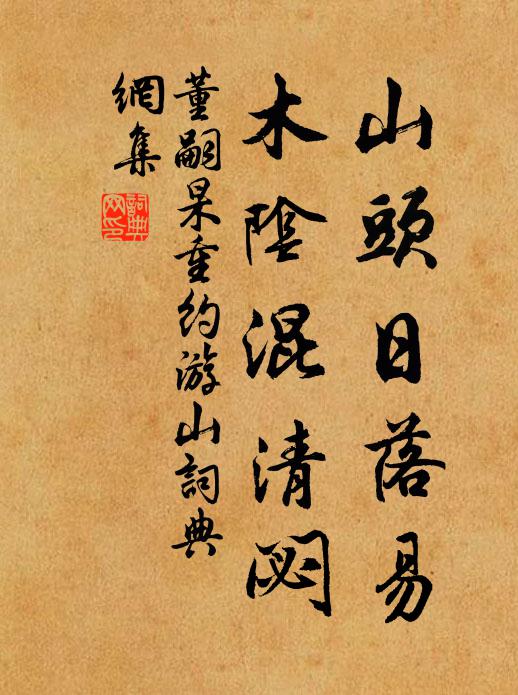 山頭日落易
木陰混清閟
董嗣杲重約游山詞典
網集
詞典網印